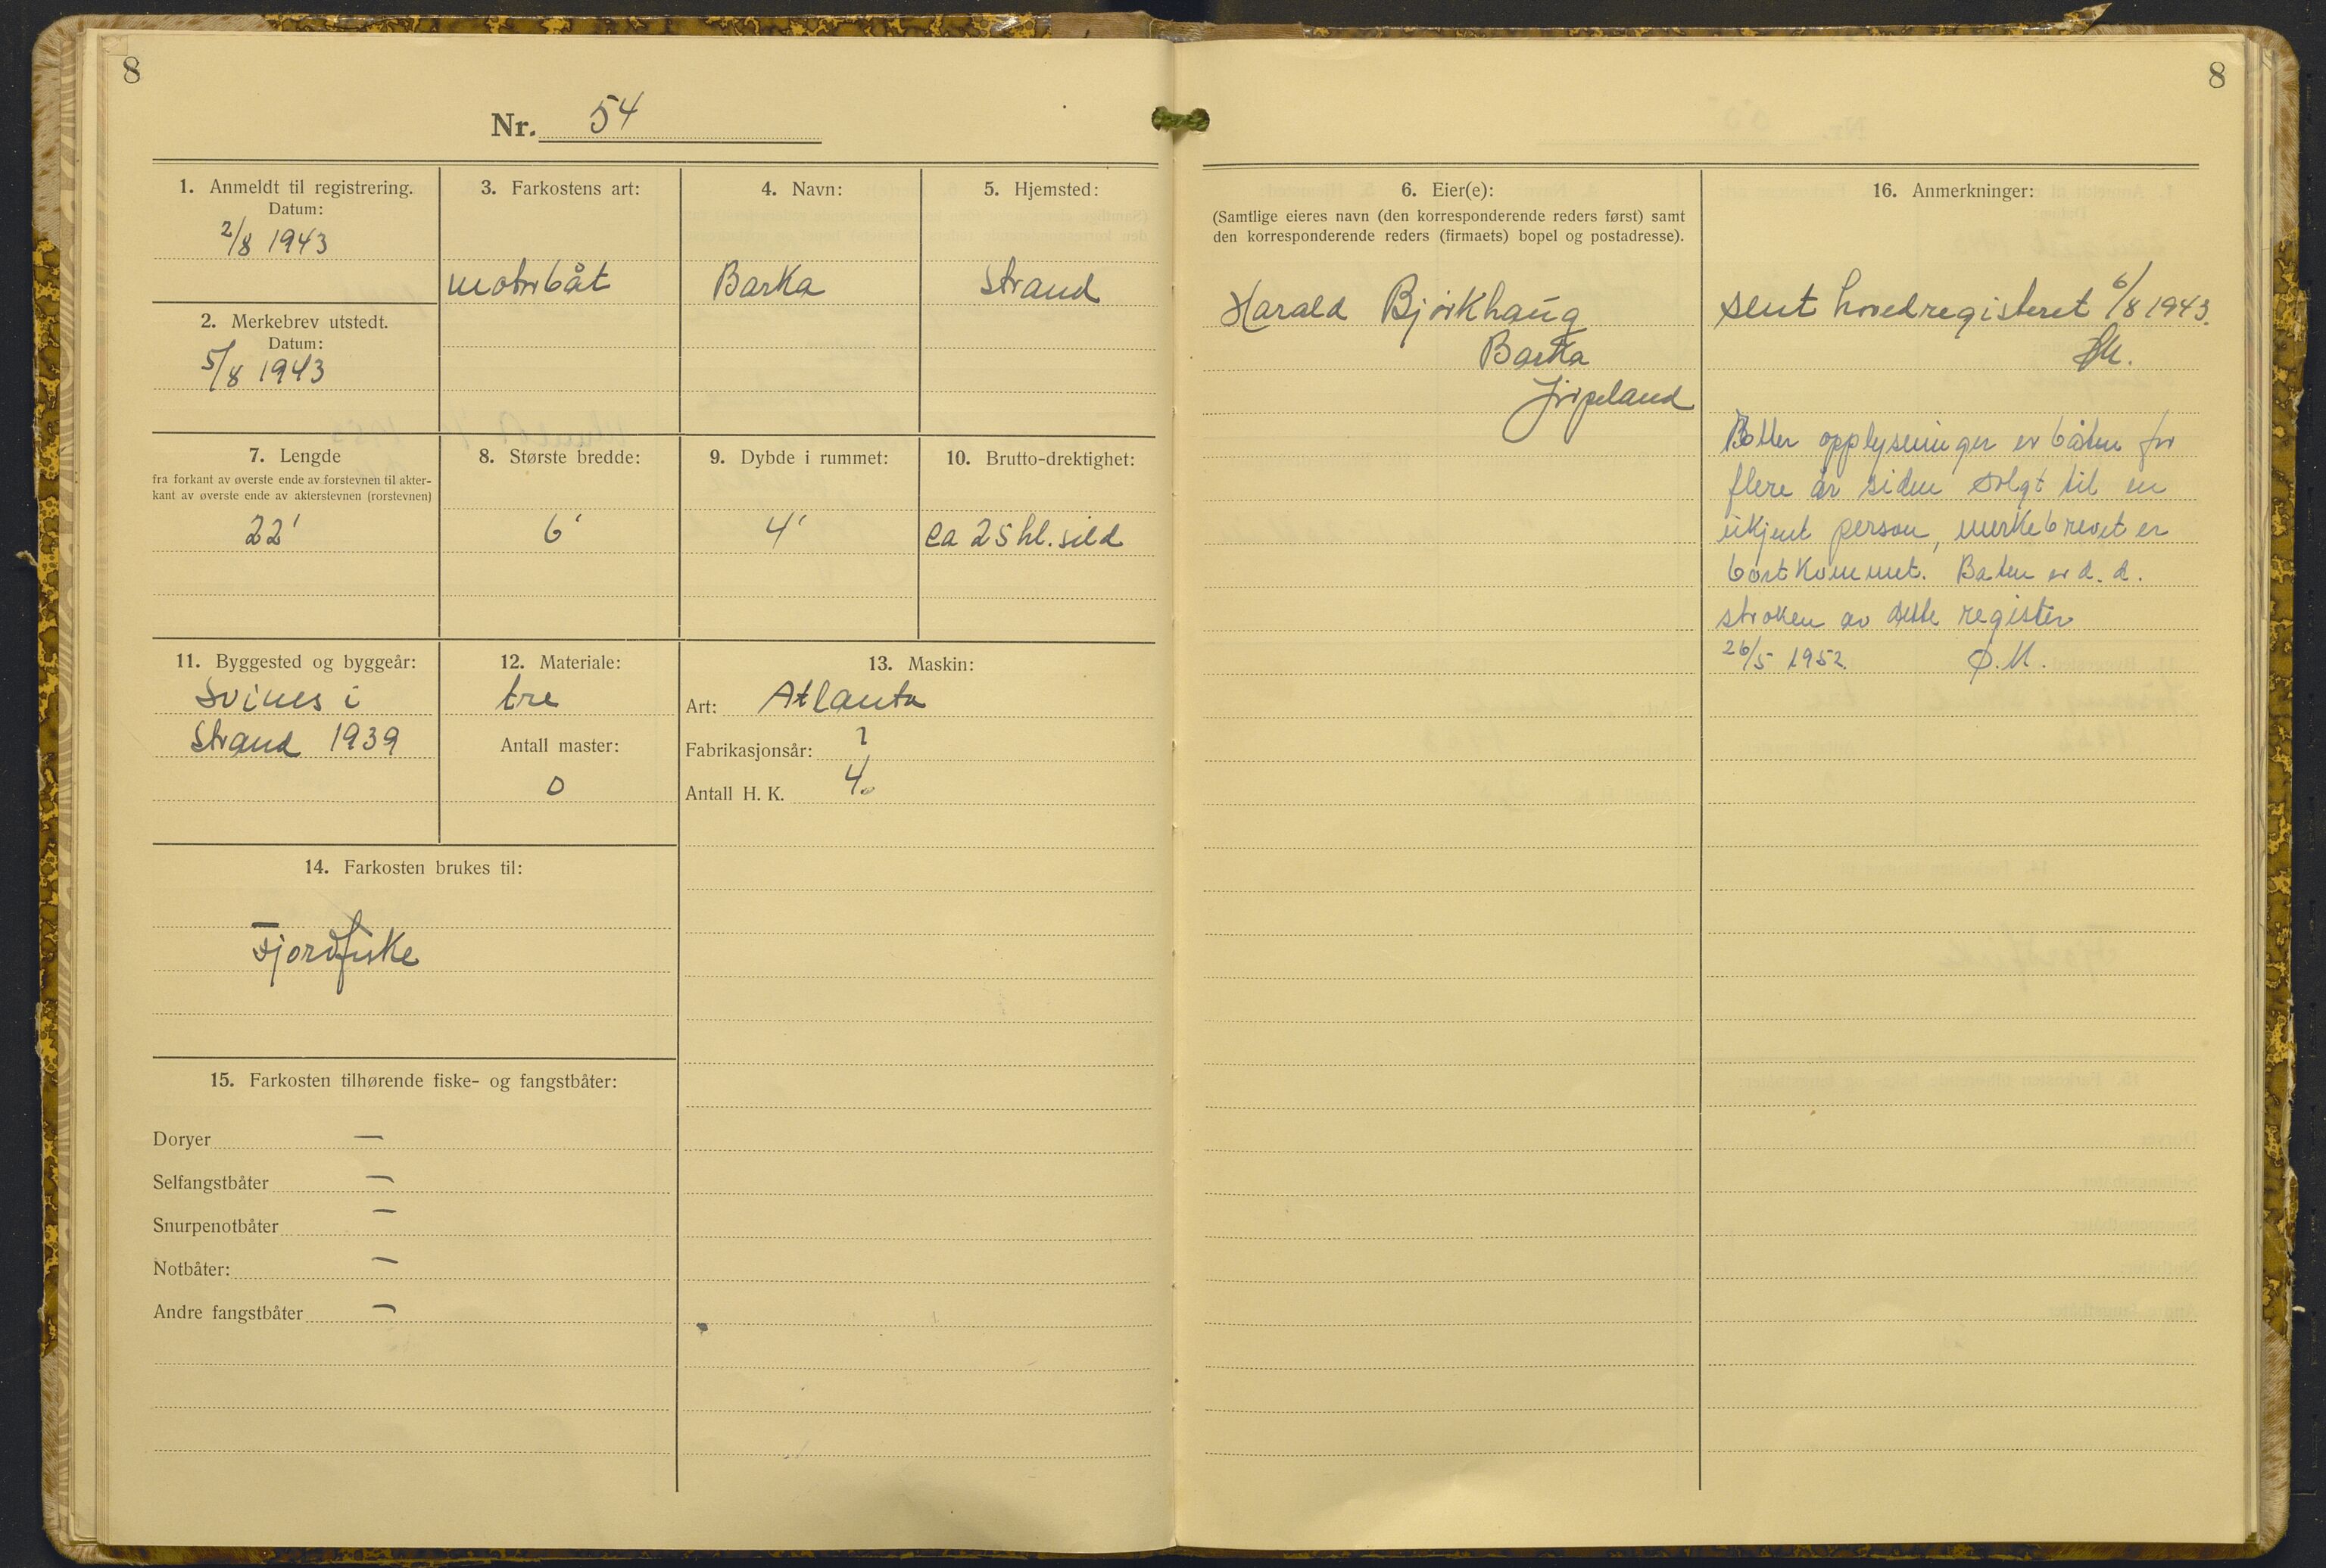 8
Nr. 54
1. Anmeldt til registrering.
Datum:
2/8 1943
2. Merkebrev utstedt.
Datum:
5/8 1943
3. Farkostens art:
motorbåt
4. Navn:
Barka
5. Hjemsted:
Strand
7. Lengde
fra forkant av øverste ende av forstevnen til akter-
kant av øverste ende av akterstevnen (rorstevnen)
22'
8. Største bredde:
6'
9. Dybde i rummet:
4'
10. Brutto-drektighet:
ca 25 hl. sild
11. Byggested og byggeår:
Svines i
Strand 1939
12. Materiale:
tre
Antall master:
0
13. Maskin:
Art: Atlanta
Fabrikasjonsår: ?
Antall H. K. 4.
14. Farkosten brukes til:
Fjordfiske
15. Farkosten tilhørende fiske- og fangstbåter:
Doryer —
Selfangstbåter —
Snurpenotbåter —
Notbåter: —
Andre fangstbåter —
8
6. Eier(e):
(Samtlige eieres navn (den korresponderende reders først) samt
den korresponderende reders (firmaets) bopel og postadresse).
Harald Bjørkhaug
Barka
Jørpeland
16. Anmerkninger:
sent hovedregisteret 6/8 1943.
Etter opplysninger er båten for
flere år siden solgt til en
ukjent person, merkebrevet er
bortkommet. Båten er d. d.
strøken av dette register
26/5 1952. Ø.M.